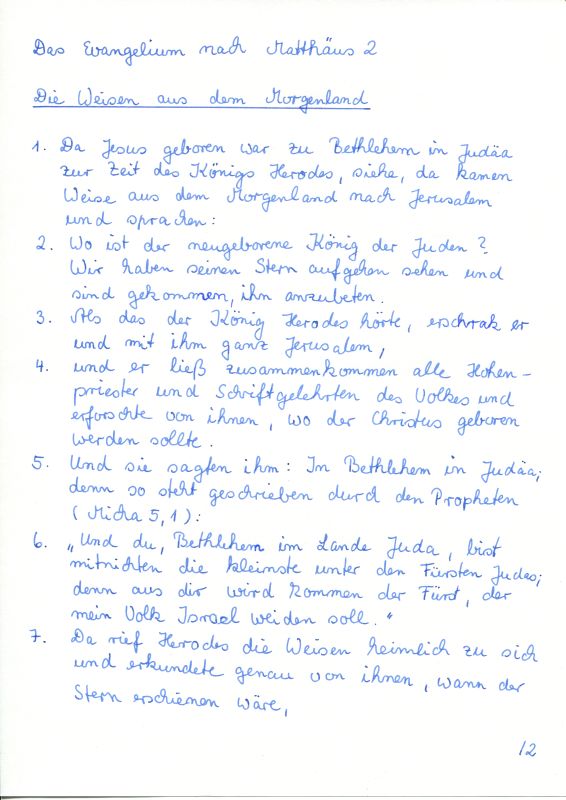 Das Evangelium nach Matthäus 2
Die Weisen aus dem Morgenland
1. Da Jesus geboren war zu Bethlehem in Judäa
zur Zeit des Königs Herodes, siehe, da kamen
Weise aus dem Morgenland nach Jerusalem
und sprachen:
2. Wo ist der neugeborene König der Juden?
Wir haben seinen Stern aufgehen sehen und
sind gekommen, ihn anzubeten.
3. Als das der König Herodes hörte, erschrak er
und mit ihm ganz Jerusalem,
4. und er ließ zusammenkommen alle Hohen-
priester und Schriftgelehrten des Volkes und
erforschte von ihnen, wo der Christus geboren
werden sollte.
5. Und sie sagten ihm: In Bethlehem in Judäa;
denn so steht geschrieben durch den Propheten
(Micha 5,1):
6. „Und du, Bethlehem im Lande Juda, bist
mitnichten die kleinste unter den Fürsten Judas;
denn aus dir wird kommen der Fürst, der
mein Volk Israel weiden soll."
7. Da rief Herodes die Weisen heimlich zu sich
und erkundete genau von ihnen, wann der
Stern erschienen wäre,
/2